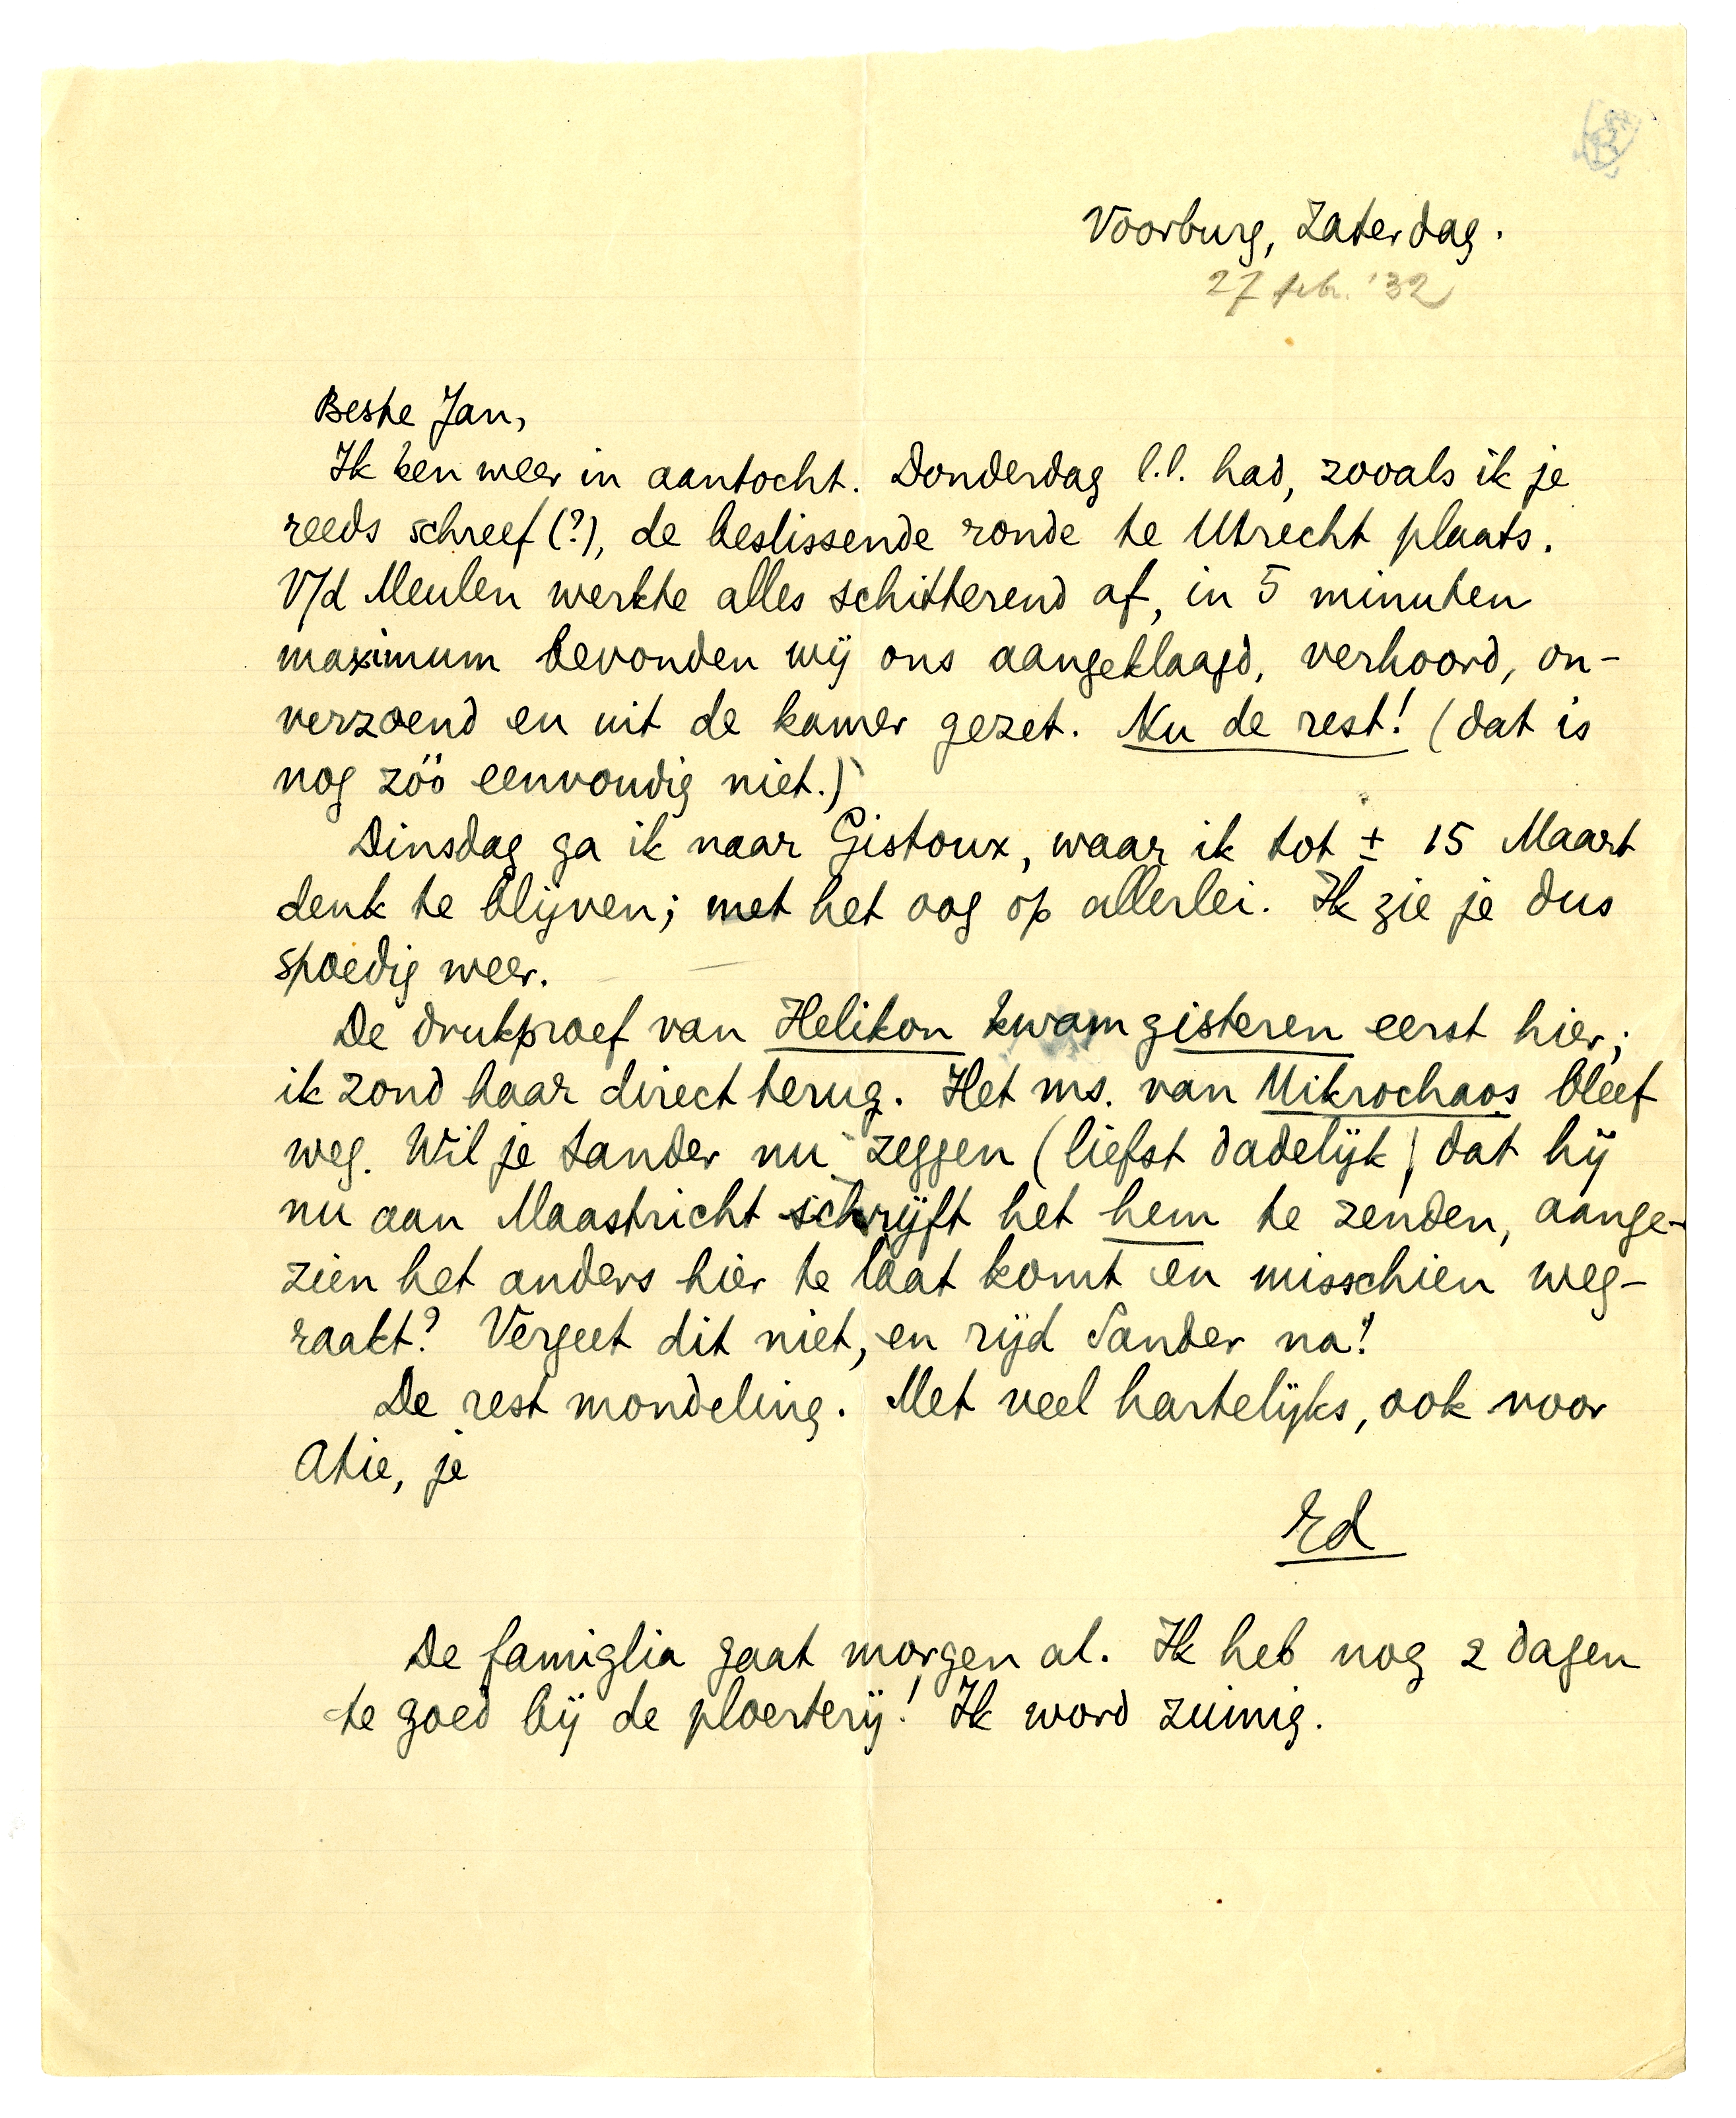 Voorburg, Zaterdag.
27 feb. '32
Beste Jan,
Ik ben weer in aantocht. Donderdag l.l. had, zooals ik je
reeds schreef (?), de beslissende ronde te Utrecht plaats.
V/d Meulen werkte alles schitterend af, in 5 minuten
maximum bevonden wij ons aangeklaagd, verhoord, on-
verzoend en uit de kamer gezet. Nu de rest! (dat is
nog zóó eenvoudig niet.)
Dinsdag ga ik naar Gistoux, waar ik tot ± 15 Maart
denk te blijven; met het oog op allerlei. Ik zie je dus
spoedig weer.
De drukproef van Helikon kwam gisteren eerst hier;
ik zond haar direct terug. Het ms. van Mikrochaos bleef
weg. Wil je Sander nu zeggen (liefst dadelijk) dat hij
nu aan Maastricht schrijft het hem te zenden, aange-
zien het anders hier te laat komt en misschien weg-
raakt? Vergeet dit niet, en rijd Sander na!
De rest mondeling. Met veel hartelijks, ook voor
Atie, je
Ed
De famiglia gaat morgen al. Ik heb nog 2 dagen
te goed bij de ploerterij! Ik word zuinig.